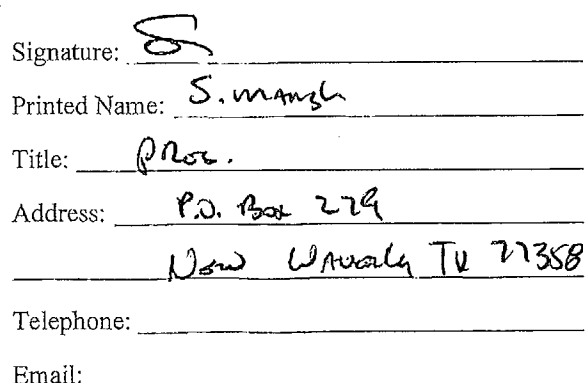 Signature:
Printed Name: S.
Title:
Address: P.O. Box 279
New Waverly TX 77358
Telephone:
Email: